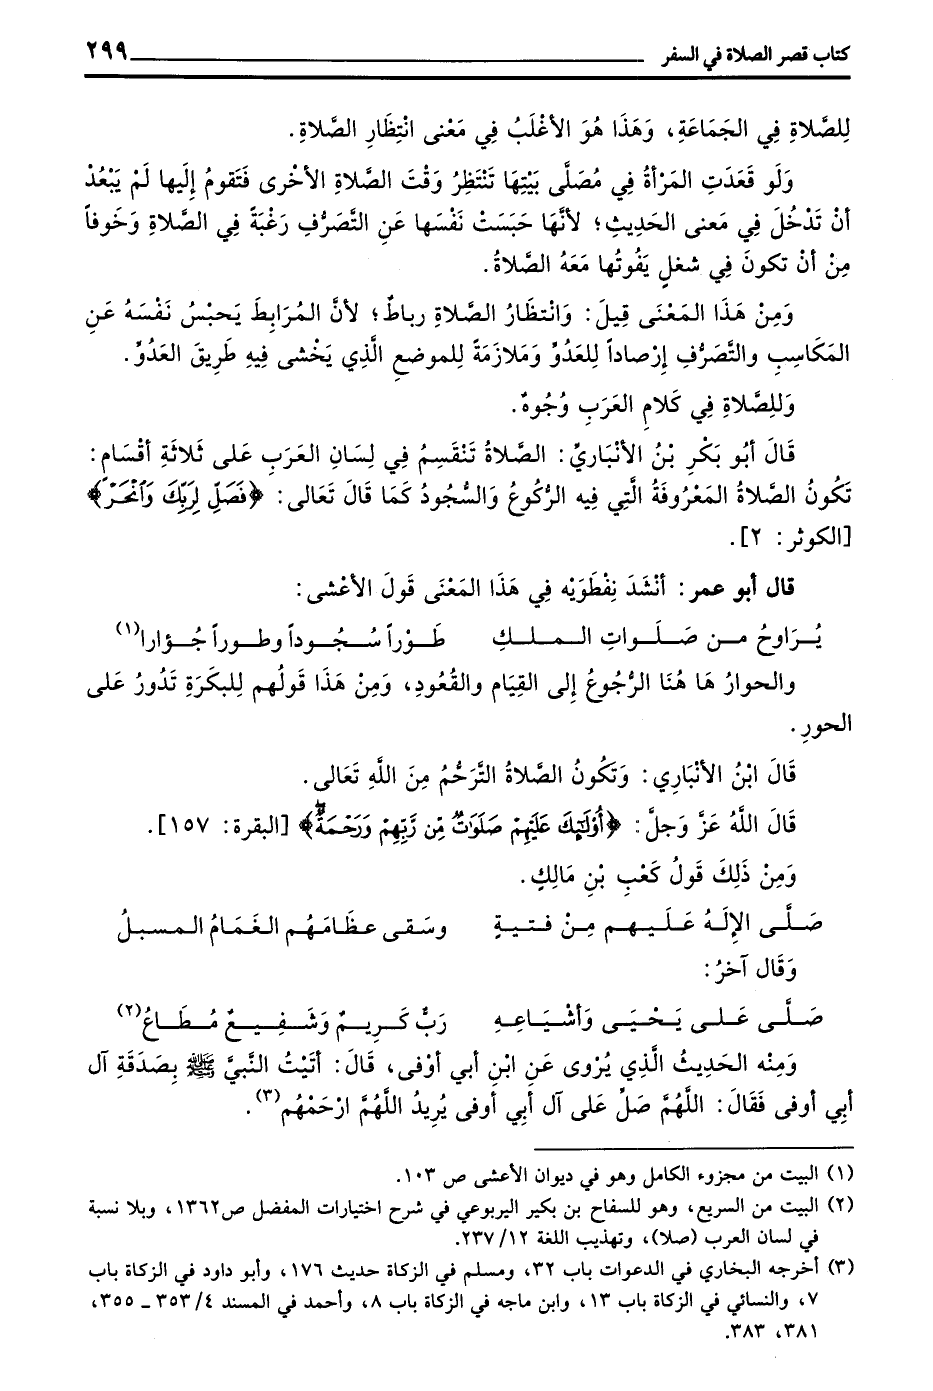 كتاب قصر الصلاة في السفر ٢٩٩
لِلصَّلاةِ فِي الجَمَاعَةِ، وَهَذَا هُوَ الأَغْلَبُ فِي مَعْنى انْتِظَارِ الصَّلاةِ.
وَلَو قَعَدَتِ المَرْأةُ فِي مُصَلَّى بَيْتِهَا تَنْتَظِرُ وَقْتَ الصَّلاةِ الأخْرى فَتَقومُ إِلَيها لَمْ يَبْعُدْ
أنْ تَدْخُلَ فِي مَعنى الحَدِيثِ؛ لأنَّهَا حَبَسَتْ نَفْسَها عَنِ التَّصَرُّفِ رَغْبَةً فِي الصَّلاةِ وَخَوفاً
مِنْ أنْ تكونَ فِي شغلٍ يَفُوتُها مَعَهُ الصَّلاةُ.
وَمِنْ هَذَا المَعْنَى قِيلَ: وَانْتظَارُ الصَّلاةِ رباطٌ؛ لأنَّ المُرَابِطَ يَحبْسُ نَفْسَهُ عَنِ
المَكَاسِبِ والتَّصَرُّفِ إرْصاداً لِلعَدُوِّ وَمَلازمَةً لِلموضعِ الَّذِي يَخْشى فِيهِ طَرِيقَ العَدُوِّ.
وَلِلصَّلاةِ فِي كَلامِ العَرَبِ وُجُوهٌ.
قَالَ أبُو بَكْرِ بْنُ الأنْبَاريِّ: الصَّلاةُ تَنْقَسِمُ فِي لِسَانِ العَرَبِ عَلى ثَلاثَةِ أقْسَامٍ:
تَكُونُ الصَّلاةُ المَعْرُوفَةُ الَّتِي فِيه الرُّكُوعُ وَالسُّجُودُ كَمَا قَالَ تَعَالى: ﴿فَصَلِّ لِرَبِّكَ وَٱنْحَرْ﴾
[الكوثر: ٢].
قال أبو عمر: أنْشَدَ نِفْطَوَيْه فِي هَذَا المَعْنَى قَولَ الأعْشى:
يُرَاوحُ مـن صَلَواتِ المـلـكِ طَوْراً سُجُوداً وطوراً جُؤارا(١)
والحوارُ هَا هُنَا الرُّجُوعُ إلى القِيَام والقُعُودِ، وَمِنْ هَذَا قَولُهم لِلبكَرَةِ تَدُورُ عَلى
الحورِ.
قَالَ ابْنُ الأنْبَارِي: وَتَكُونُ الصَّلاةُ التَّرَحُّمُ مِنَ اللَّهِ تَعَالى.
قَالَ اللَّهُ عَزَّ وَجلَّ: ﴿أُوْلَٰٓئِكَ عَلَيْهِمْ صَلَوَٰتٌ مِّن رَّبِّهِمْ وَرَحْمَةٌ﴾ [البقرة: ١٥٧].
وَمِنْ ذَلِكَ قَولُ كَعْبِ بْنِ مَالِكٍ.
صَلَّى الإلَهُ عَلَيهم مِنْ فتيةٍ وسَقى عظَامَهُم الغَمَامُ المسبلُ
وَقَال آخرُ:
صَلَّى عَلى يَحْيَى وَأشْيَاعِهِ رَبٌّ كَرِيمٌ وَشَفِيعٌ مُطَاعُ(٢)
وَمِنْه الحَدِيثُ الَّذِي يُرْوى عَنِ ابْنِ أبي أوْفى، قَالَ: أتَيْتُ النَّبيَّ ﷺ بِصَدَقَةِ آل
أبِي أوفى فَقَالَ: اللَّهُمَّ صَلِّ عَلى آل أبي أوفى يُرِيدُ اللَّهُمَّ ارْحَمْهُم(٣).
(١) البيت من مجزوء الكامل وهو في ديوان الأعشى ص ١٠٣.
(٢) البيت من السريع، وهو للسفاح بن بكير اليربوعي في شرح اختيارات المفضل ص١٣٦٢، وبلا نسبة
في لسان العرب (صلا)، وتهذيب اللغة ٢٣٧/١٢.
(٣) أخرجه البخاري في الدعوات باب ٣٢، ومسلم في الزكاة حديث ١٧٦، وأبو داود في الزكاة باب
٧، والنسائي في الزكاة باب ١٣، وابن ماجه في الزكاة باب ٨، وأحمد في المسند ٣٥٣/٤ ـ ٣٥٥،
٣٨١، ٣٨٣.